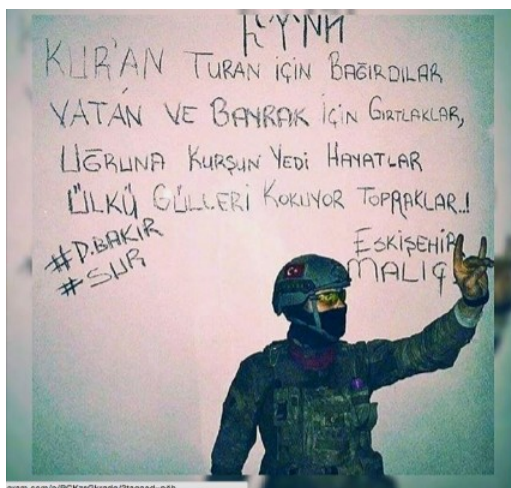 KUR'AN TURAN İÇİN BAĞIRDILAR
VATAN VE BAYRAK İÇİN GIRTLAKLAR,
UĞRUNA KURŞUN YEDİ HAYATLAR
ÜLKÜ GÜLLERİ KOKUYOR TOPRAKLAR..!
#D.BAKIR
#SUR
ESKİŞEHİR
MALIÇ